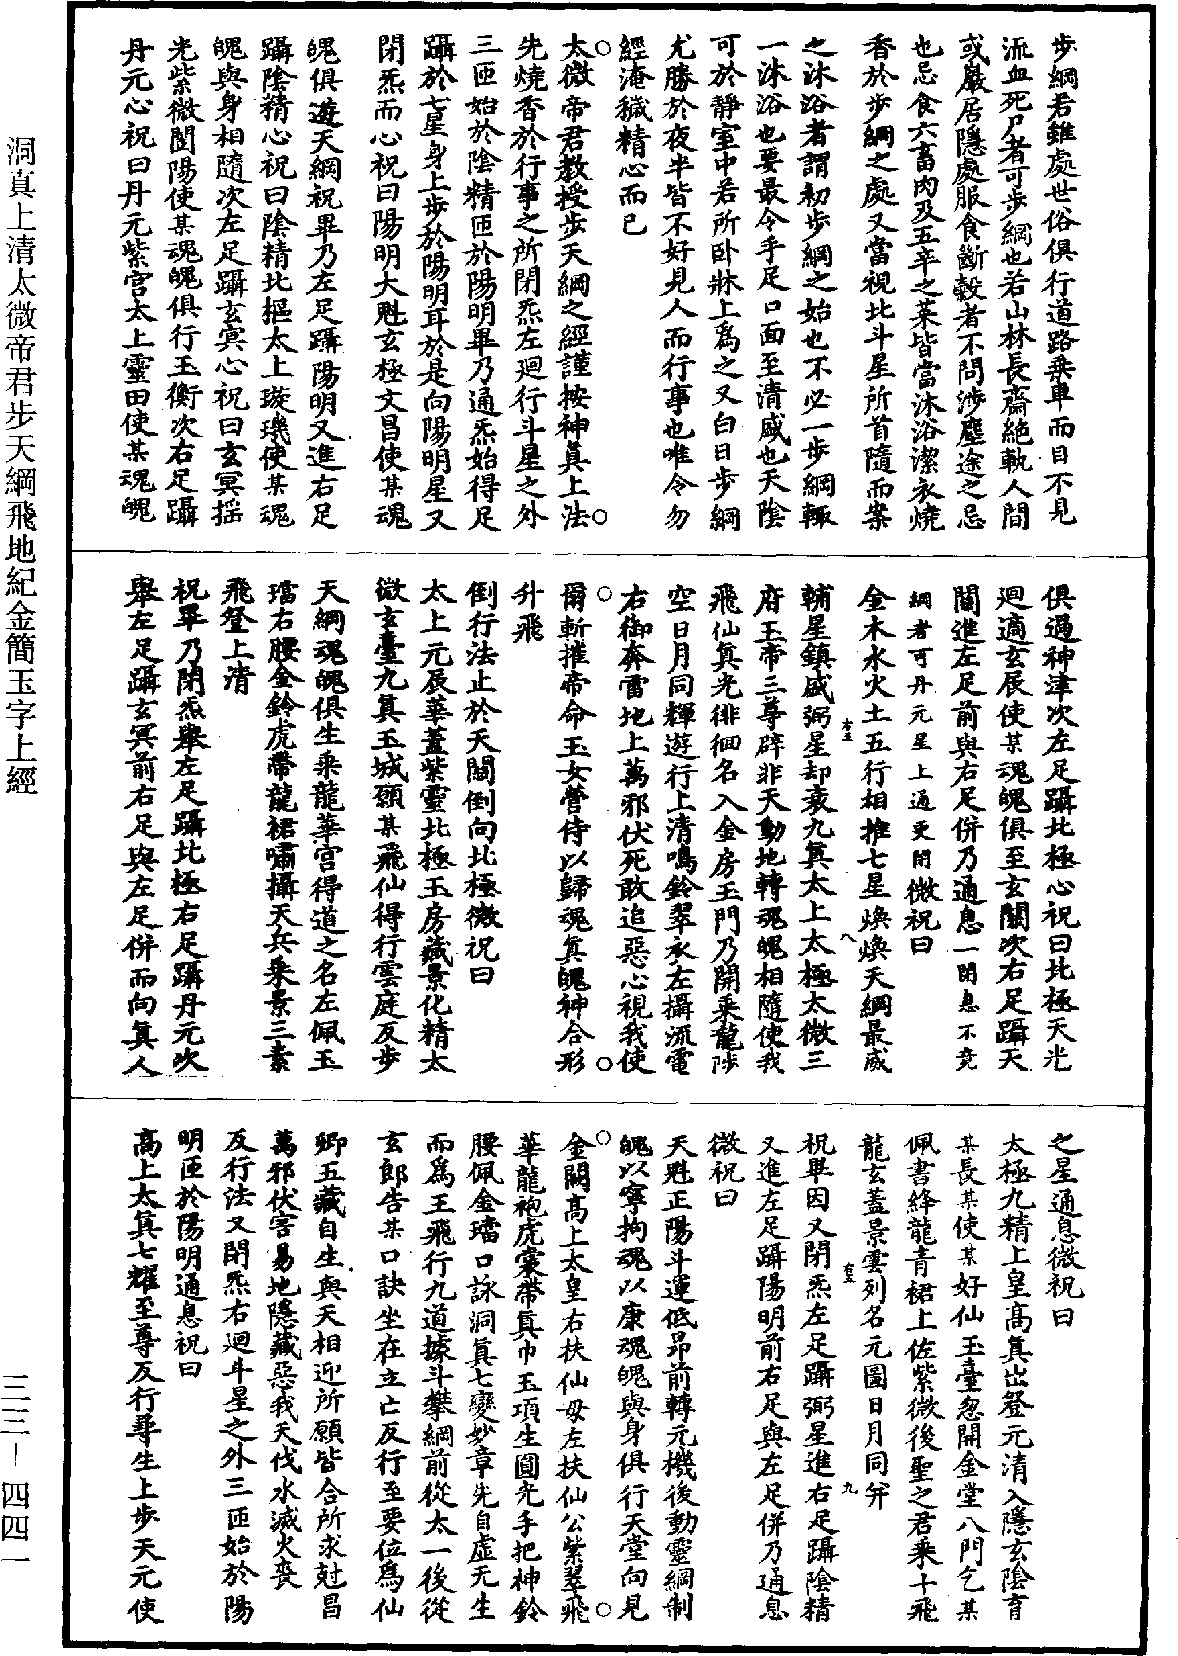 步綱若雖處世俗俱行道路乘車而目不見
流血死尸者可步綱也若山林長齋絕軌人間
或巖居隱處服食斷穀者不問涉塵途之忌
也忌食六畜肉及五辛之菜皆當沐浴潔衣燒
香於步綱之處又當視北斗星所首隨而案
之沐浴者謂初步綱之始也不必一步綱輙
一沐浴也要最令手足口面至清盛也天陰
可於靜室中若所卧牀上爲之又白日步綱
尤勝於夜半皆不好見人而行事也唯令勿
經淹穢精心而已
○太微帝君教授步天綱之經謹按神真上法○
先燒香於行事之所閉炁左廻行斗星之外
三匝始於陰精匝於陽明畢乃通炁始得足
躡於七星身上步於陽明耳於是向陽明星又
閉炁而心祝曰陽明大魁玄極文昌使某魂
魄俱遊天綱祝畢乃左足躡陽明又進右足
躡陰精心祝曰陰精北摳太上璇璣使某魂
魄與身相隨次左足躡玄冥心祝曰玄冥揺
光紫微閶陽使某魂魄俱行玉衡次右足躡
丹元心祝曰丹元紫宮太上靈田使某魂魄
俱過神津次左足躡北極心祝曰北極天光
廻適玄辰使某魂魄俱至玄關次右足躡天
關進左足前與右足併乃通息一閉息不竟
綱者可丹元星上通更閉微祝曰
金木水火土五行相推七星煥煥天綱最威
輔星鎮盛弼星却衰九真太上太極太微三
府玉帝三尊辟非天動地轉魂魄相隨使我
飛仙真光徘徊名入金房玉門乃開乘龍陟
空日月同輝遊行上清鳴鈴翠衣左攝流電
右御奔雷地上萬邪伏死敢追惡心視我使
○爾斬摧帝命玉女營侍以歸魂真魄神合形○
升飛
倒行法止於天關倒向北極微祝曰
太上元辰華蓋紫靈北極玉房藏景化精太
微玄臺九真玉城願某飛仙得行雲庭反步
天綱魂魄俱生乘龍華宮得道之名左佩玉
璫右腰金鈴虎帶龍裙嘯攝天兵乘景三素
飛登上清
祝畢乃閉炁舉左足躡北極右足躡丹元次
舉左足躡玄冥前右足與左足併而向真人
之星通息微祝曰
太極九精上皇高真出登元清入隱玄陰育
某長某使某好仙玉臺忽開金堂八門乞某
佩書絳龍青裙上佐紫微後聖之君乘十飛
龍玄蓋景雲列名元圖日月同筓
祝畢因又閉炁左足躡弼星進右足躡陰精
又進左足躡陽明前右足與左足併乃通息
微祝曰
天魁正陽斗運低昂前轉元機後動靈綱制
魄以寧拘魂以康魂魄與身俱行天堂向見
○金闕高上太皇右扶仙母左扶仙公紫翠飛○
華龍袍虎裳帶真巾玉項生圓光手把神鈴
腰佩金璫口詠洞真七變妙章先自虛无生
而爲王飛行九道據斗攀綱前從太一後從
玄郎告某口訣坐在立亡反行至要位爲仙
卿五藏自生與天相迎所願皆合所求尅昌
萬邪伏害易地隱藏惡我天伐水滅火喪
反行法又閉炁右廻斗星之外三匝始於陽
明匝於陽明通息祝曰
高上太真七耀至尊反行尋生上步天元使
洞真上清太微帝君步天綱飛地紀金簡玉字上經
三三－四四一